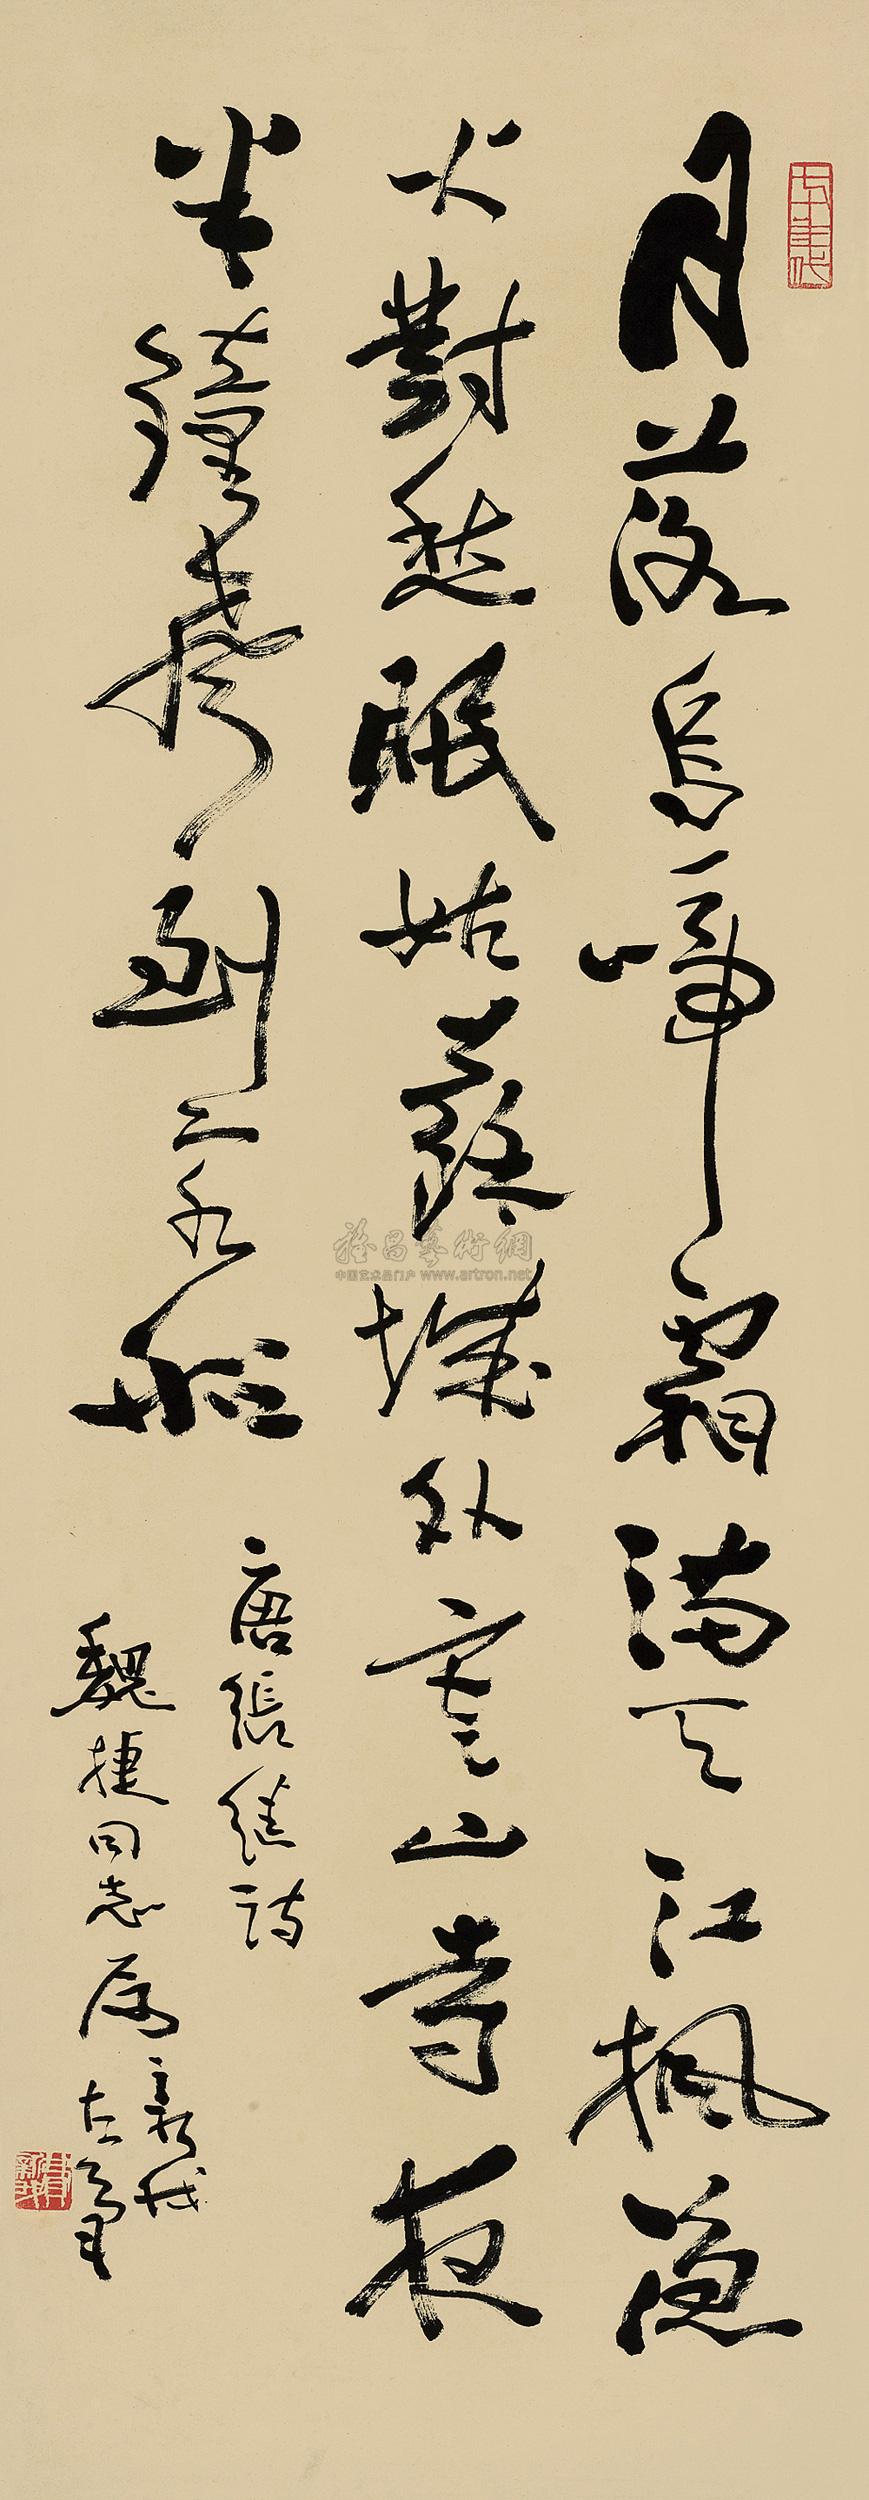 月落烏啼霜滿天江楓漁
火對愁眠姑蘇城外寒山寺夜
半鐘聲到客船
唐張繼詩
魏捷同志屬
新我
左筆
七十年代
費新我
雅昌藝術網
中国艺术品门户 www.artron.net